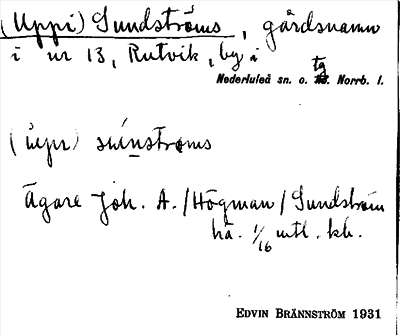 (Uppi) Sundströms, gårdsnamn
i nr 13, Rutvik, by i
Nederluleå sn. o. tg. Norrb. l.
sʉ́nstroms
Ägare Joh. A. /Högman/ Sundström
hä. 1/16 mtl. kh.
EDVIN BRÄNNSTRÖM 1931